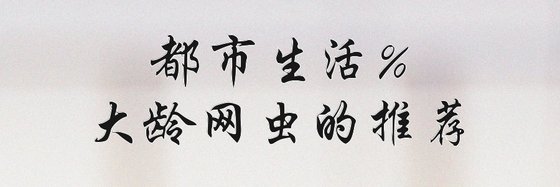 都市生活%
大龄网虫的推荐